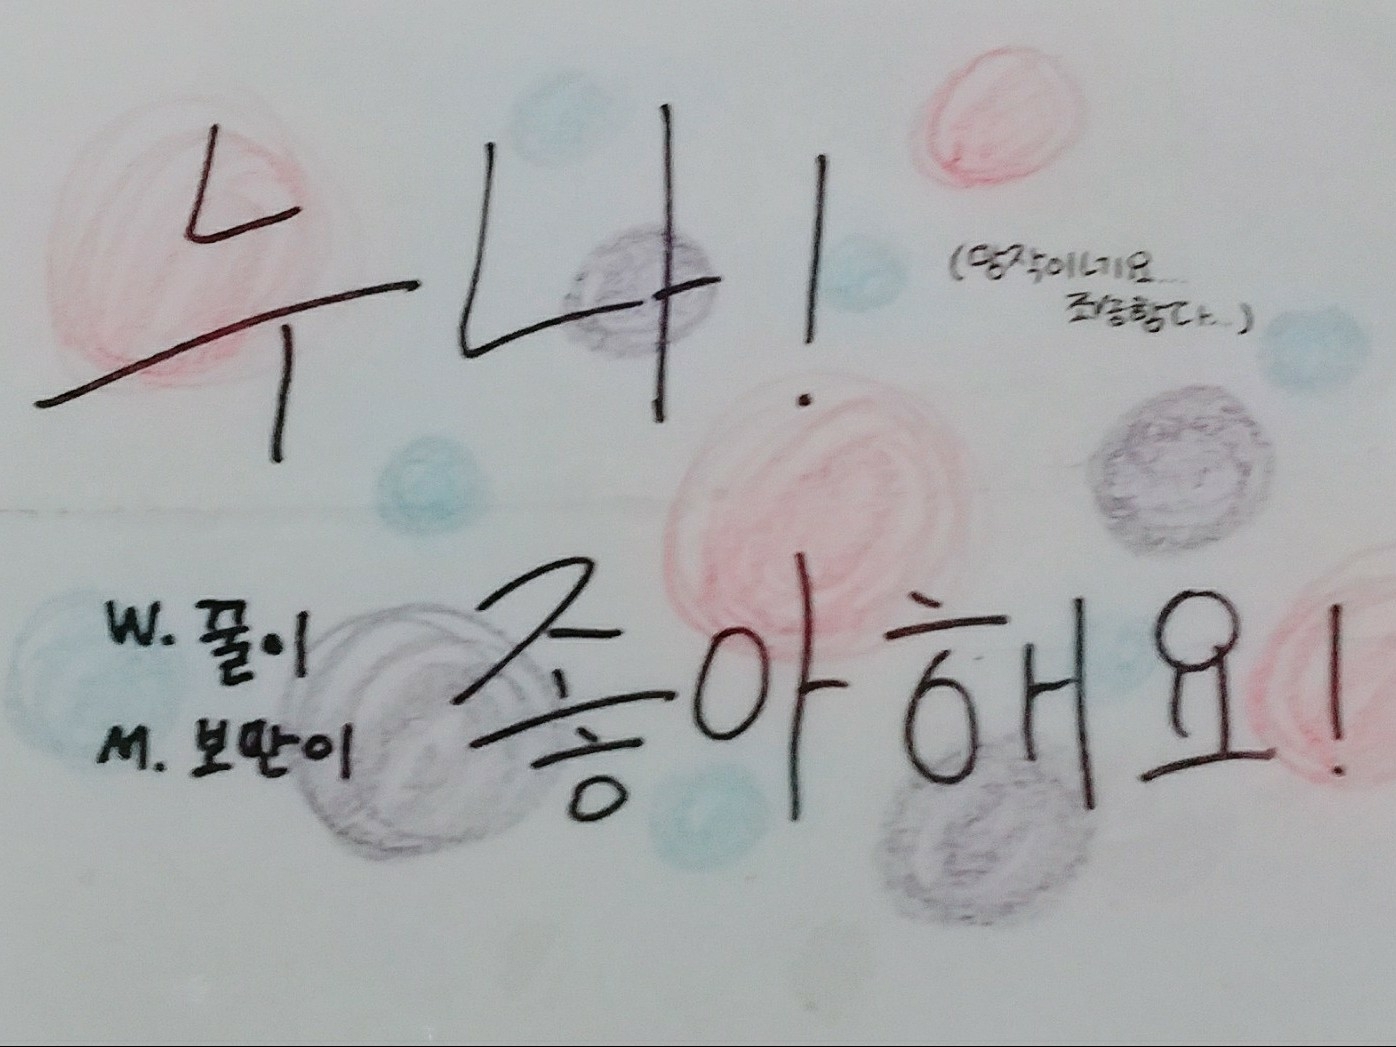 누나!
(망작이네요...
죄송합니다...)
좋아해요!
W. 꿀이
M. 보만이